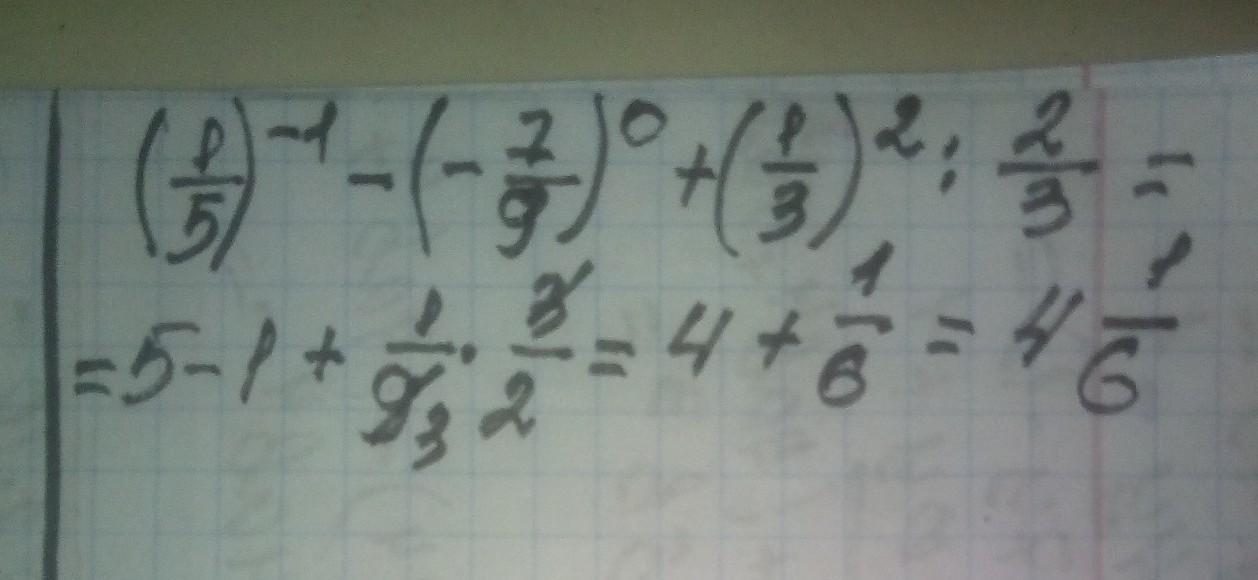 (1/5)^-1 - (-7/9)^0 + (1/3)^2 : 2/3 =
= 5 - 1 + 1/9 3 · 3/2 = 4 + 1/6 = 4 1/6